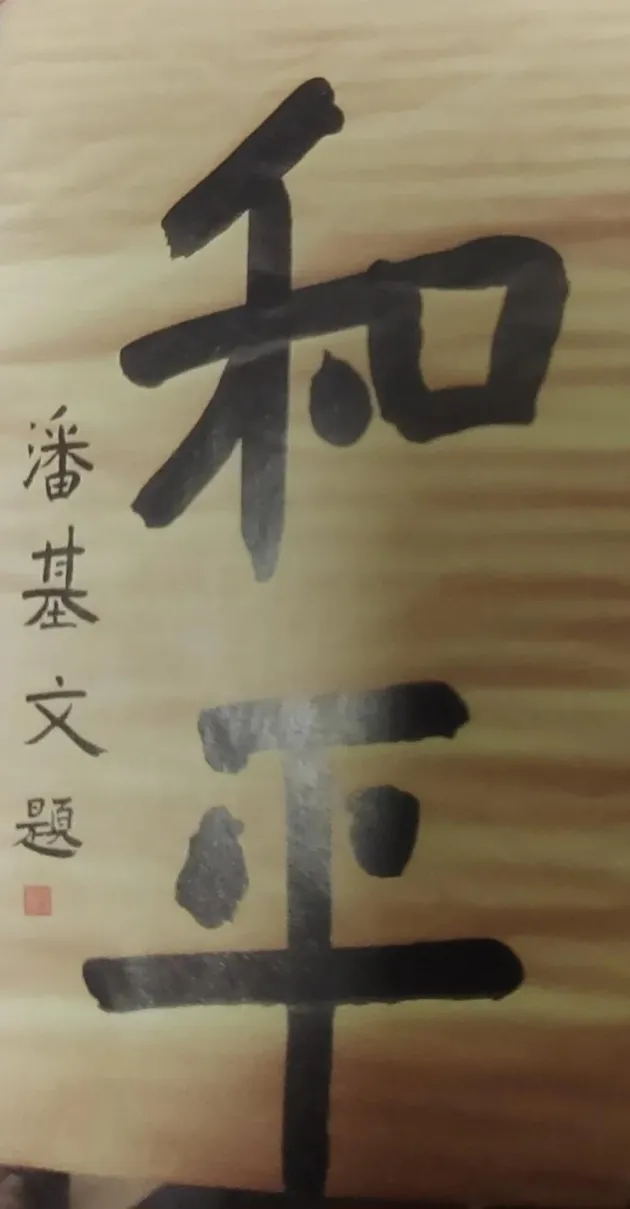 和平
潘基文題